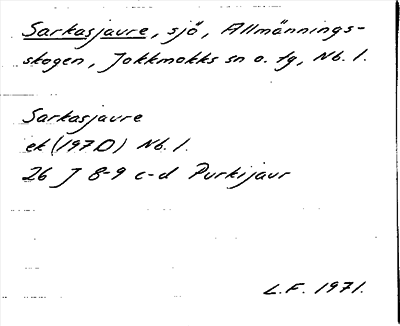 Sarkasjaure, sjö, Allmännings-
skogen, Jokkmokks sn o. tg, Nb. l.
Sarkasjaure
ek (197D) Nb. l.
26 J 8-9 c-d Purkijaur
L.F. 1971.